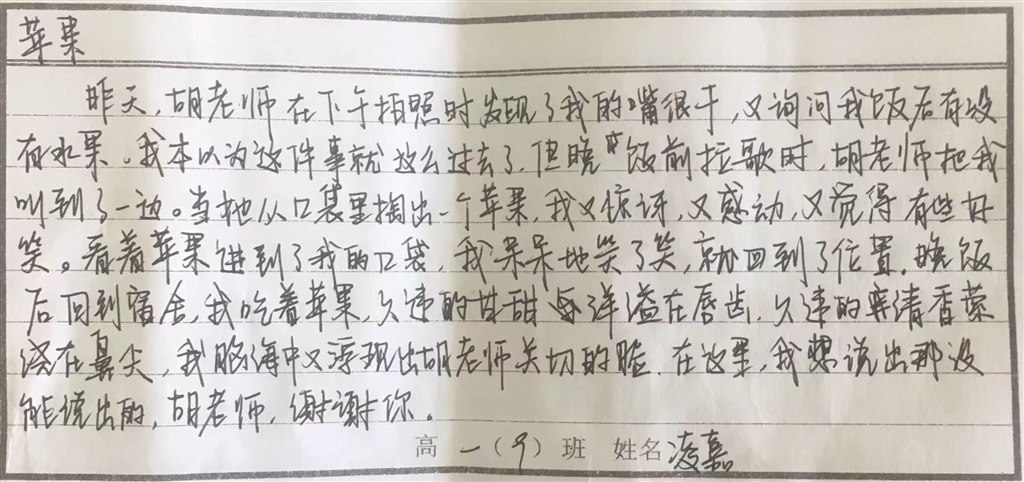 苹果
昨天，胡老师在下午拍照时发现了我的嘴很干，又询问我饭后有没
有水果。我本以为这件事就这么过去了，但晚饭前拉歌时，胡老师把我
叫到了一边。当她从口袋里掏出一个苹果，我又惊讶，又感动，又觉得有些好
笑。看着苹果进到了我的口袋，我呆呆地笑了笑，就回到了位置。晚饭
后回到宿舍，我吃着苹果，久违的甘甜洋溢在唇齿，久违的清香萦
绕在鼻尖，我脑海中又浮现出胡老师关切的脸。在这里，我想说出那没
能说出的，胡老师，谢谢你。
高一（9）班 姓名凌嘉